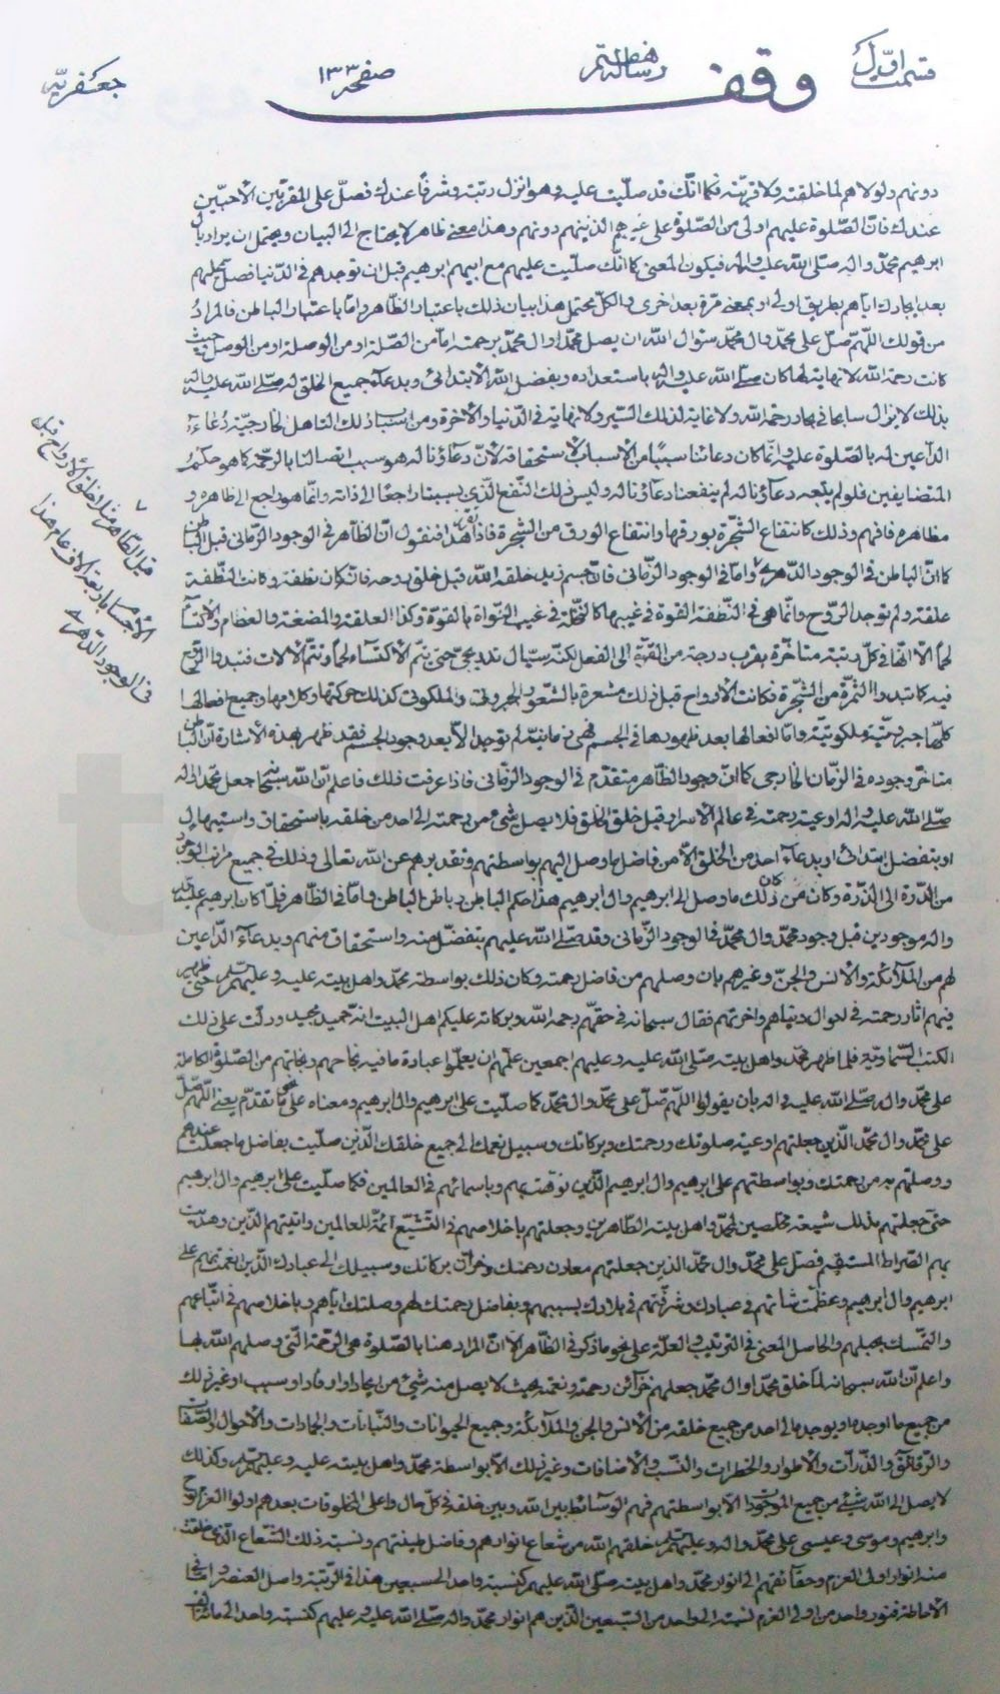 قسمت اوّل وقف رساله هفتم صفحه ١٣٣ جعفریّه
دونهم ولولا هم لما خلقته ولا قربته فكما انّك قد صلّيت عليه وهو انزل رتبة وشرفاً عندك فصلّ على المقرّبين الأحبّين
عندك فانّ الصّلوة عليهم اولى من الصّلوة على غيرهم الذينهم دونهم وهذا معنى ظاهر لا يحتاج الى البيان ويحتمل ان يراد بآل
ابرهيم محمّد وآله صلّى الله عليه وآله فيكون المعنى كما انّك صلّيت عليهم مع ابيهم ابرهيم قبل ان توجدهم فى الدّنيا فصلّ عليهم
بعد ايجادك ايّاهم بطريق اولى او بمعنى مرّة بعد اخرى والكلّ محتمل هذا بيان ذلك باعتبار الظّاهر وامّا باعتبار الباطن فالمراد
من قولك اللّهمّ صلّ على محمّد وآل محمّد سؤال الله ان يصل محمّداً وآل محمّد برحمته امّا من الصّلة او من الوصلة او من الوصل حيث
كانت رحمة الله لا نهاية لها كان صلّى الله عليه وآله باستعداده وبفضل الله الابتدائى وبدعآء جميع الخلق له صلّى الله عليه وآله
بذلك لا يزال سابحاً فى بحار رحمة الله ولا غاية لذلك السّير ولا نهاية فى الدّنيا والآخرة ومن اسباب ذلك التاهل الخارجيّة دعآء
الدّاعين له بالصّلوة عليه وانّما كان دعائنا سبباً من الأسباب لاستحقاقه لأنّ دعآؤنا له هو سبب اتصالنا بالرّحمة كما هو حكم
المتضايفين فلو لم يلحقه دعآؤنا له لم ينفعنا دعآؤنا له وليس ذلك النّفع الّذى بسببنا راجعاً الى ذاته وانّما هو راجع الى ظاهره و
مظاهره فافهم وذلك كانتفاع الشّجرة بورقها وانتفاع الورق من الشّجرة فاذا تقرّر هذا فنقول انّ الظّاهر فى الوجود الزّمانى قبل الباطن
كما انّ الباطن فى الوجود الدّهرى وامّا فى الوجود الزّمانى فانّ جسم زيد خلقه الله قبل خلق روحه فانّه كان نطفة وكانت النّطفة
علقة ولم توجد الرّوح وانّما هى فى النّطفة بالقوّة فى غيبها كالنّخلة فى غيب النّواة بالقوّة وكذا العلقة والمضغة والعظام والاكتسآء
لحماً الّا انّها فى كلّ رتبة متأخّرة بقرب درجة من القوّة الى الفعل لكنّه سيّال تدريجىّ حتى يتمّ الاكتسآء لحماً وتتمّ الآلات فتبدو الرّوح
فيه كما تبدو الثّمرة من الشّجرة فكانت الأرواح قبل ذلك مشعرة بالشّعور الجبروتى والملكوتى كذلك حركتها وكلامها وجميع افعالها
كلّها جبروتيّة وملكوتيّة وامّا افعالها بعد ظهورها فى الجسم فهى زمانيّة لم توجد الّا بعد وجود الجسم فقد ظهر بهذه الاشارة انّ الباطن
متأخر وجوده فى الزّمان الخارجى كما انّ وجود الظّاهر متقدّم فى الوجود الزمانى فاذا عرفت ذلك فاعلم انّ الله سبحانه جعل محمّداً وآله
صلّى الله عليه وآله اوعية رحمته فى عالم الأسرار قبل خلق الخلق فلا يصل شىء من رحمته الى احد من خلقه باستحقاق واستيهال
او بتفضل ابتدائى او بدعآء احد من الخلق الّا من فاضل ما وصل اليهم بواسطتهم وتقديرهم عن الله تعالى وذلك فى جميع مراتب الوجود
من الذّرة الى الذّرة وكان من ذلك ما وصل الى ابرهيم وآل ابرهيم هذا حكم الباطن وباطن الباطن وامّا فى الظّاهر فلمّا كان ابرهيم عليه السّلام
وآله موجودين قبل وجود محمّد وآل محمّد فى الوجود الزّمانى وقد صلّى الله عليهم بتفضّل منه واستحقاق منهم وبدعآء الدّاعين
لهم من الملآئكة والانس والجنّ وغيرهم بان وصلهم من فاضل رحمته وكان ذلك بواسطة محمّد واهل بيته عليه وعليهم السّلم حتّى ظهر
فيهم اثار رحمته فى احوال دنياهم واخرتهم فقال سبحانه فى حقّهم رحمة الله وبركاته عليكم اهل البيت انّه حميد مجيد ودلّت على ذلك
الكتب السّماويّة فلمّا ظهر محمّد واهل بيته صلّى الله عليه وعليهم اجمعين علّمهم ان يعلّموا عباده ما فيه نجاحهم ونجاتهم من الصّلوة الكاملة
على محمّد وآله صلّى الله عليه وآله بان يقولوا اللّهمّ صلّ على محمّد وآل محمّد كما صلّيت على ابرهيم وآل ابرهيم ومعناه على نحو ما تقدّم يعنى اللّهمّ صلّ
على محمّد وآل محمّد الّذين جعلتهم اوعية صلوتك ورحمتك وبركاتك وسبيل نعمك الى جميع خلقك الّذين صلّيت بفاضل ما جعلت عندهم
ووصلتهم به من رحمتك وبواسطتهم على ابرهيم وآل ابرهيم الّذين نوّهت بهم وباسمائهم فى العالمين فكما صلّيت على ابرهيم وآل ابرهيم
حتّى جعلتهم بذلك شيعة مخلصين لمحمّد واهل بيته الطّاهرين وجعلتهم باخلاصهم فى التّشيّع ائمّة للعالمين واتيتهم الدّين وهديت
بهم الصّراط المستقيم فصلّ على محمّد وآل محمّد الذين جعلتهم معادن رحمتك وخزآئن بركاتك وسبيلك الى عبادك الّذين انعمت بهم على
ابرهيم وآل ابرهيم وعظّمت شأنهم فى عبادك وشرّفتهم فى بلادك بسببهم وبفاضل رحمتك لهم وصلتك ايّاهم وباخلاصهم فى اتّباعهم
والتّمسك بحبلهم والحاصل المعنى فى الترتيب والعلّة على نحو ما ذكر فى الظّاهر الّا انّ المراد هنا بالصّلوة هى الرّحمة الّتى وصلهم الله بها
واعلم انّ الله سبحانه لمّا خلق محمّداً وآل محمّد جعلهم خزآئن رحمته ونعمه بحيث لا يصل منه شىء من ايجاد او ارفاد او سبب او غير ذلك
من جميع ما اوجد وما يوجد الى احد من جميع خلقه من الانس والجن والملآئكة وجميع الحيوانات والنّباتات والجمادات والأحوال والصّفات
والرّقائق والذّرّات والأطوار والخطرات والنّسب والاضافات وغير ذلك الّا بواسطة محمّد واهل بيته عليه وعليهم السّلم وكذلك
لا يصل الى الله شىء من جميع الموجودات الّا بواسطتهم فهم الوسآئط بين الله وبين خلقه فى كلّ حال واعلى المخلوقات بعدهم اولوا العزم نوح
وابرهيم وموسى وعيسى على محمّد وآله وعليهم السّلم خلقهم الله من شعاع انوارهم وفاضل طينتهم ونسبة ذلك الشّعاع الّذى خلقت
منه انوار اولى العزم وحقآئقهم الى انوار محمّد واهل بيته صلّى الله عليهم كنسبة واحد الى سبعين هذا فى الرّتبة واصل العنصر وامّا فى
الاحاطة فنور واحد من اولى العزم نسبته الى واحد من السّبعين الّذين هم انوار محمّد وآله صلّى الله عليه وعليهم كنسبة واحد الى مائة الف
قبل الظّاهر خلق الأرواح قبل
الأجسام باربعة الاف عام هذا
فى الوجود الدّهرى